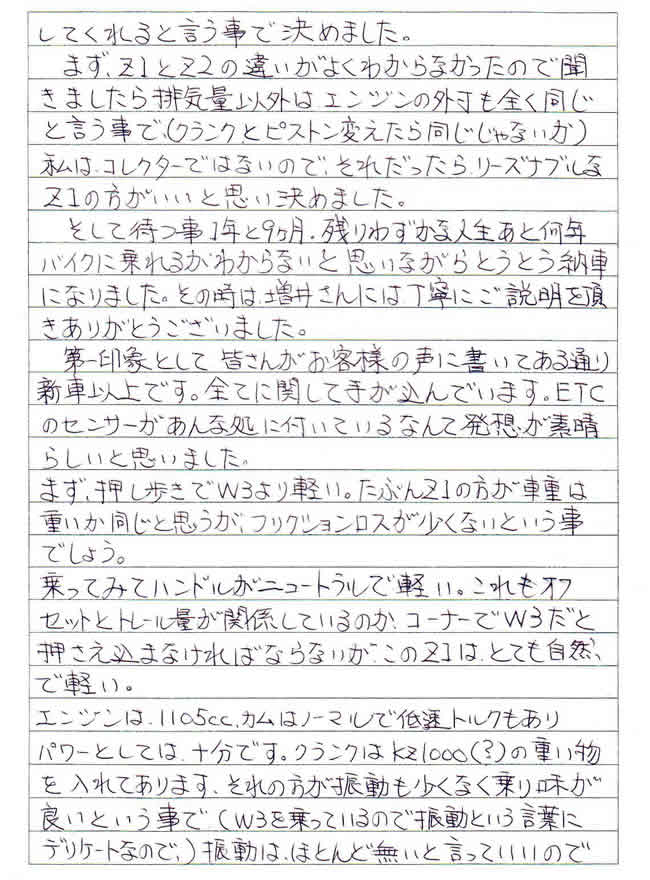 してくれると言う事で決めました。
まず、Z1とZ2の違いがよくわからなかったので聞
きましたら排気量以外はエンジンの外寸も全く同じ
と言う事で、(クランクとピストン変えたら同じじゃないか)
私は、コレクターではないので、それだったら、リーズナブルな
Z1の方がいいと思い決めました。
そして待つ事1年と9ヶ月、残りわずかな人生あと何年
バイクに乗れるかわからないと思いながらとうとう納車
になりました。その時は、増井さんには丁寧にご説明を頂
きありがとうございました。
第一印象として皆さんがお客様の声に書いてある通り
新車以上です。全てに関して手が込んでいます。ETC
のセンサーがあんな処に付いているなんて発想が素晴
らしいと思いました。
まず、押し歩きでW3より軽い。たぶんZ1の方が車重は
重いか同じと思うが、フリクションロスが少くないという事
でしょう。
乗ってみてハンドルがニュートラルで軽い。これもオフ
セットとトレール量が関係しているのか、コーナーでW3だと
押さえ込まなければならないが、このZ1は、とても自然、
で軽い。
エンジンは、1105cc、カムはノーマルで低速トルクもあり
パワーとしては、十分です。クランクはKZ1000(?)の重い物
を入れてあります、それの方が振動も少くなく乗り味が
良いという事で(W3を乗っているので振動という言葉に
デリケートなので、)振動は、ほとんど無いと言っていいので